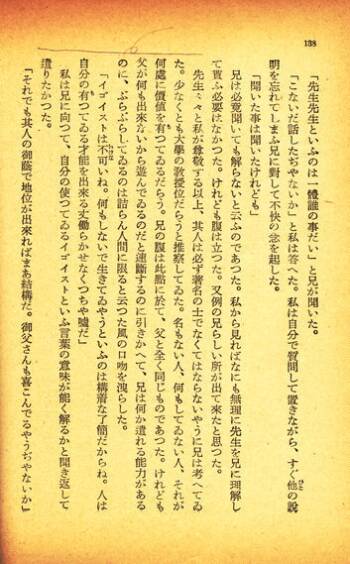 138
「先生先生といふのは一體誰の事だい」と兄が聞いた。
「こないだ話したぢやないか」と私は答へた。私は自分で質問して置きながら、すぐ他の說
明を忘れてしまふ兄に對して不快の念を起した。
「聞いた事は聞いたけれども」
兄は必竟聞いても解らないと云ふのであつた。私から見ればなにも無理に先生を兄に理解し
て貰ふ必要はなかつた。けれども腹は立つた。又例の兄らしい所が出て來たと思つた。
先生々々と私が尊敬する以上、其人は必ず著名の士でなくてはならないやうに兄は考へてゐ
た。少なくとも大學の教授位だらうと推察してゐた。名もない人、何もしてゐない人、それが
何處に價値を有つてゐるだらう。兄の腹は此點に於て、父と全く同じものであつた。けれども
父が何も出來ないから遊んでゐるのだと速斷するのに引きかへて、兄は何か遣れる能力がある
のに、ぶらぶらしてゐるのは詰らん人間に限ると云つた風の口吻を洩らした。
「イゴイストは不可いね。何もしないで生きてゐやうといふのは橫着な了簡だからね。人は
自分の有つてゐる才能を出來る丈働らかせなくつちや噓だ」
私は兄に向つて、自分の使つてゐるイゴイストといふ言葉の意味が能く解るかと聞き返して
遣りたかつた。
「それでも其人の御蔭で地位が出來ればまあ結構だ。御父さんも喜こんでるやうぢやないか」